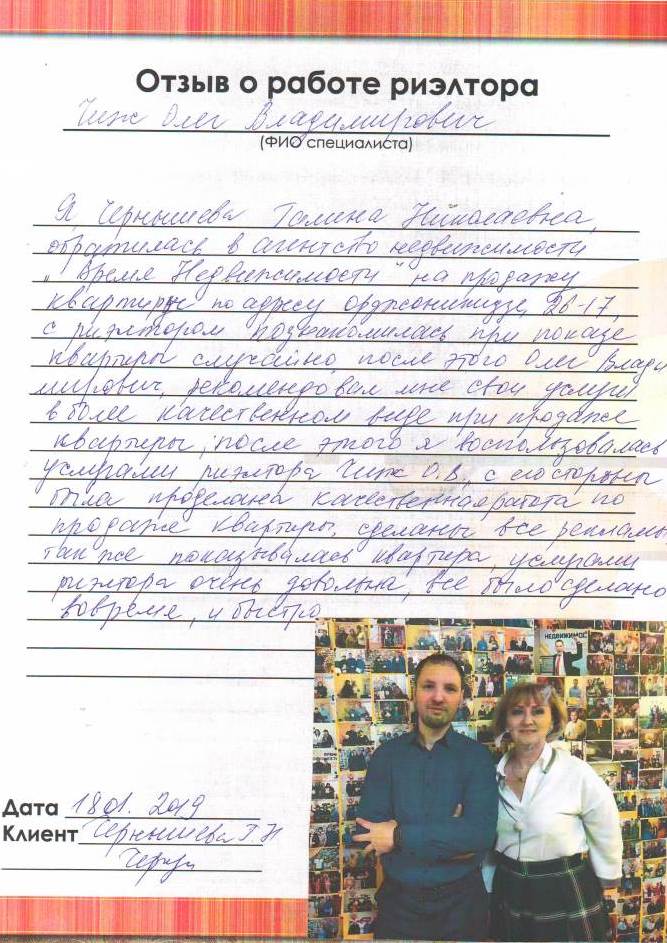 Отзыв о работе риэлтора
Чиж Олег Владимирович
(ФИО специалиста)
Я Чернышева Галина Николаевна,
обратилась в агентство недвижимости
„Время Недвижимости" на продажу
квартиры по адресу орджоникидзе, 26-17,
с риэлтором познакомилась при показе
квартиры случайно, после этого Олег Влади
мирович, рекомендовал мне свои услуги
в более качественном виде при продаже
квартиры, после этого я воспользовалась
услугами риэлтора Чиж О.В, с его стороны
была проделана качественная работа по
продаже квартиры, сделаны все рекламы
так же показывалась квартира, услугами
риэлтора очень довольна, все было сделано
вовремя, и быстро
НЕДВИЖИМОС
Дата 18.01. 2019
Клиент Чернышева Г.Н